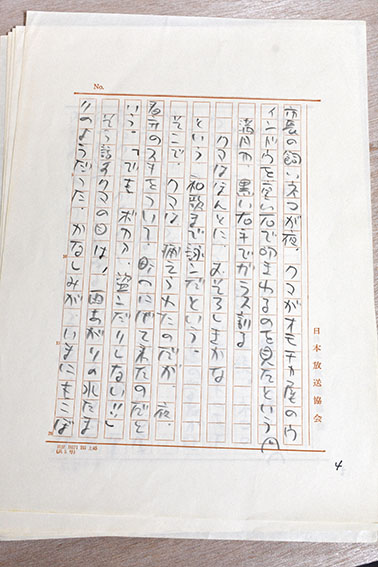 No.
市長の飼いネコが夜、クマがオモチャ屋のウ
インドウを売い石で叩きわるのを見たという
満月や、黒い右手でガラス割る
クマはほんとに、おそろしきかな
という和歌まで詠んだという。
そこで、クマは捕えられたのだが、夜、
看守のスキをついて、町へにげて来たのだと
いう。でもボクは、盗んだりしない!!と
そう話すクマの目は、雨あがりの水たま
りのようだった。かなしみが、いまにもこぼ
日本放送協会
4